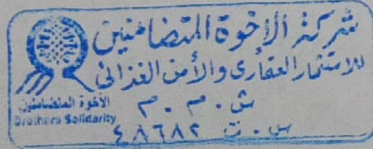 شركة الاخوة المتضامنين
للاستثمار العقارى والأمن الغذائى
ش . م . م
س . ت ٤٨٦٨٢
الأخوة المتضامنين
Brothers Solidarity